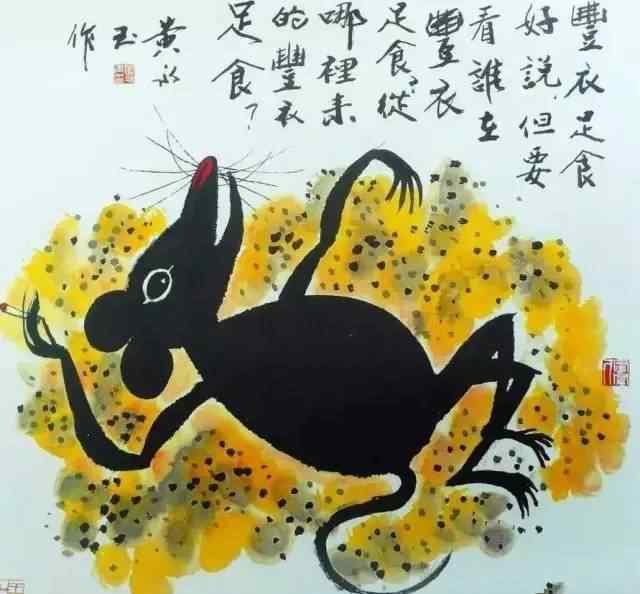 豐衣足食
好説,但要
看誰在
豐衣
足食?從
哪裡来
的豐衣
足食?
黄永
玉
作